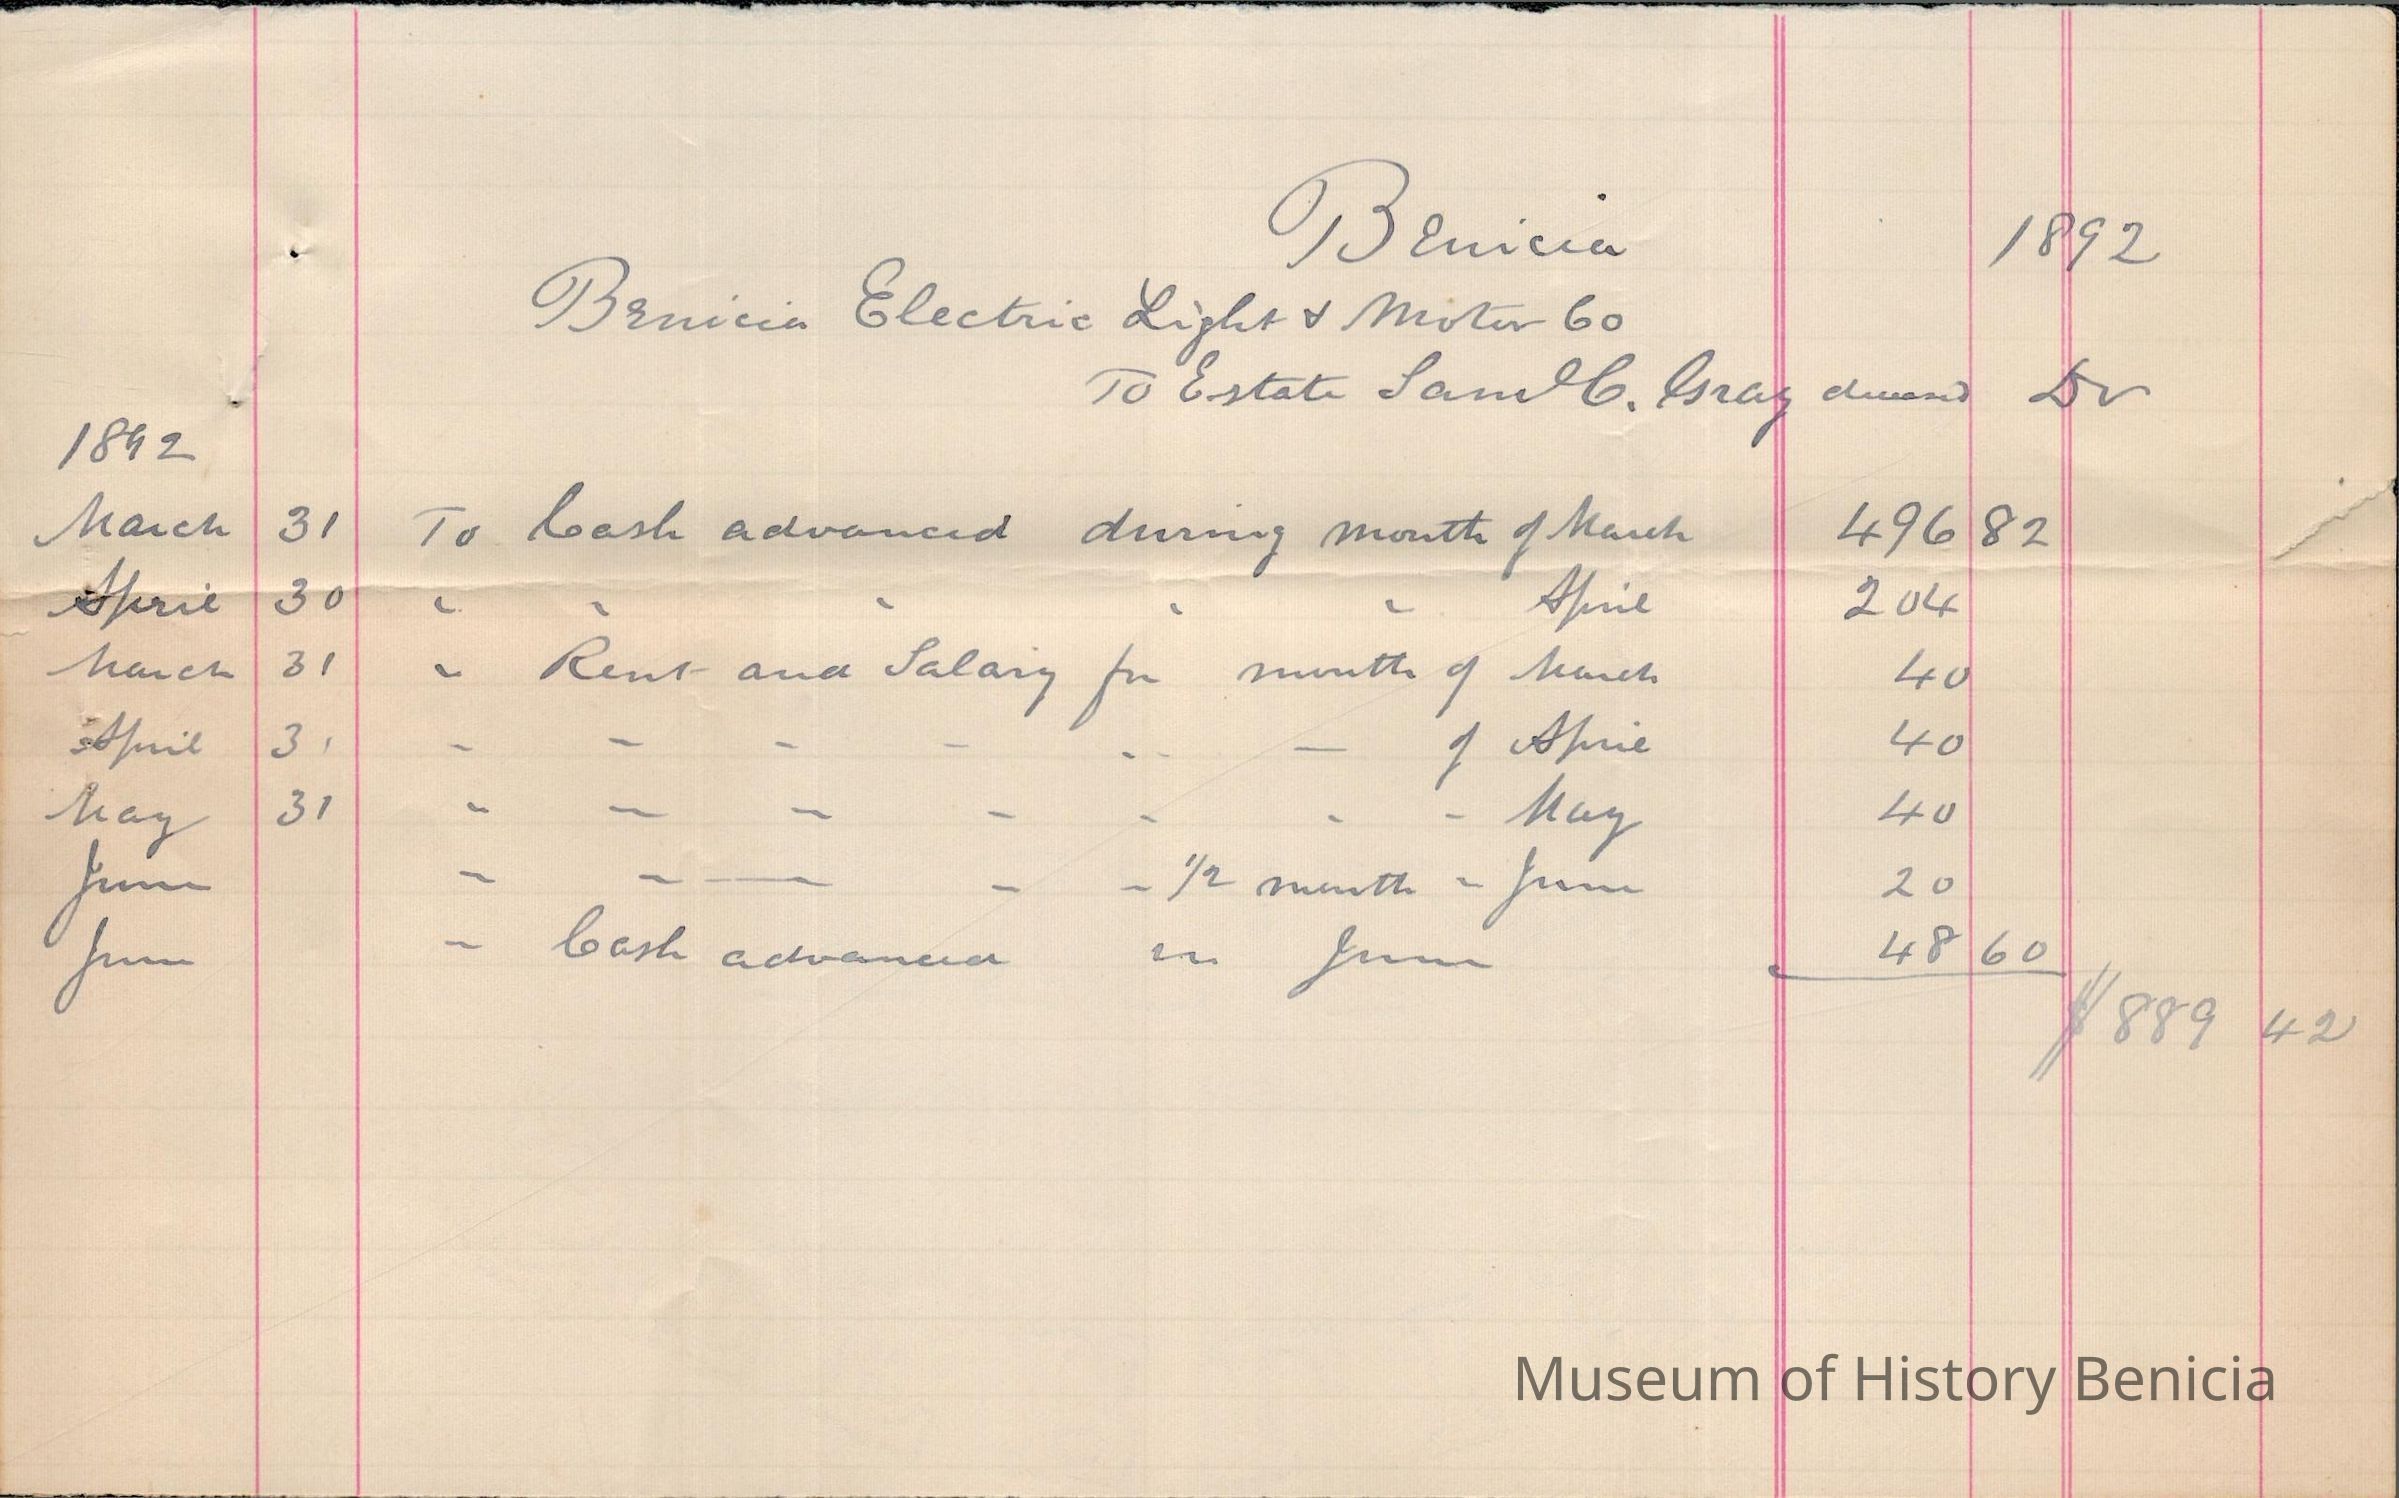 Benicia 1892
Benicia Electric Light & Motor Co
To Estate Saml C. Gray deceased Dr
1892
March 31 To Cash advanced during month of March 496 82
April 30 " " " " " April 204
March 31 " Rent and Salary for month of March 40
April 31 " " " " " " of April 40
May 31 " " " " " " " May 40
June " " — " " 1/2 month " June 20
June " Cash advanced in June 48 60
$889 42
Museum of History Benicia